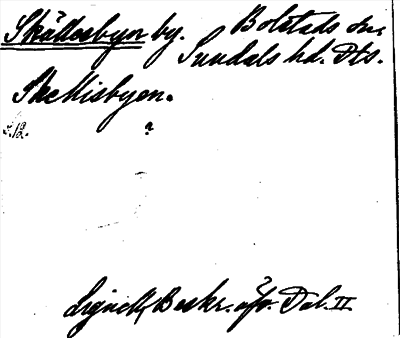 Skällesbyn by. Bolstads sn,
Sundals hd. Dls.
Skellisbyen.
a
Lignell, Beskr. öfv. Dal. II